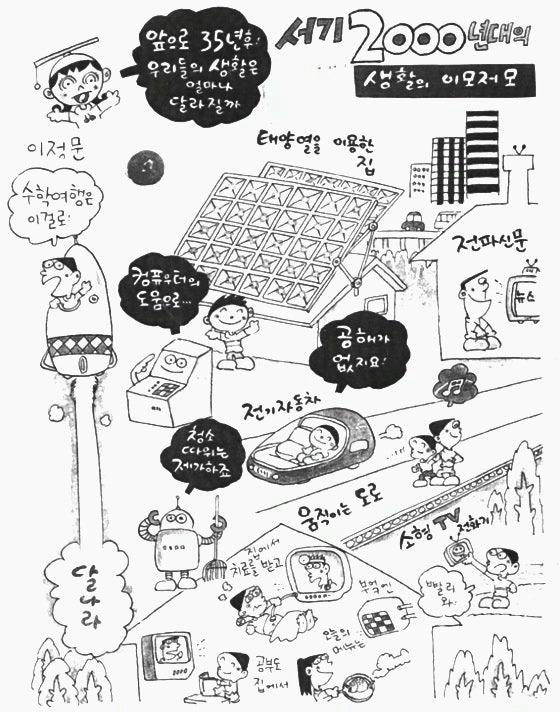 앞으로 35년후!
우리들의 생활은
얼마나
달라질까
서기 2000년대의
생활의 이모저모
이정문
수학여행은
이걸로!
태양열을 이용한
집
전파신문
뉴스
컴퓨우터의
도움으로...
공해가
없지요!
전기자동차
청소
따위는
제가하죠
움직이는 도로
소형 TV
전화기
빨리
와.
달나라
집에서
치료를 받고
부엌인
오늘의
메뉴는
공부도
집에서